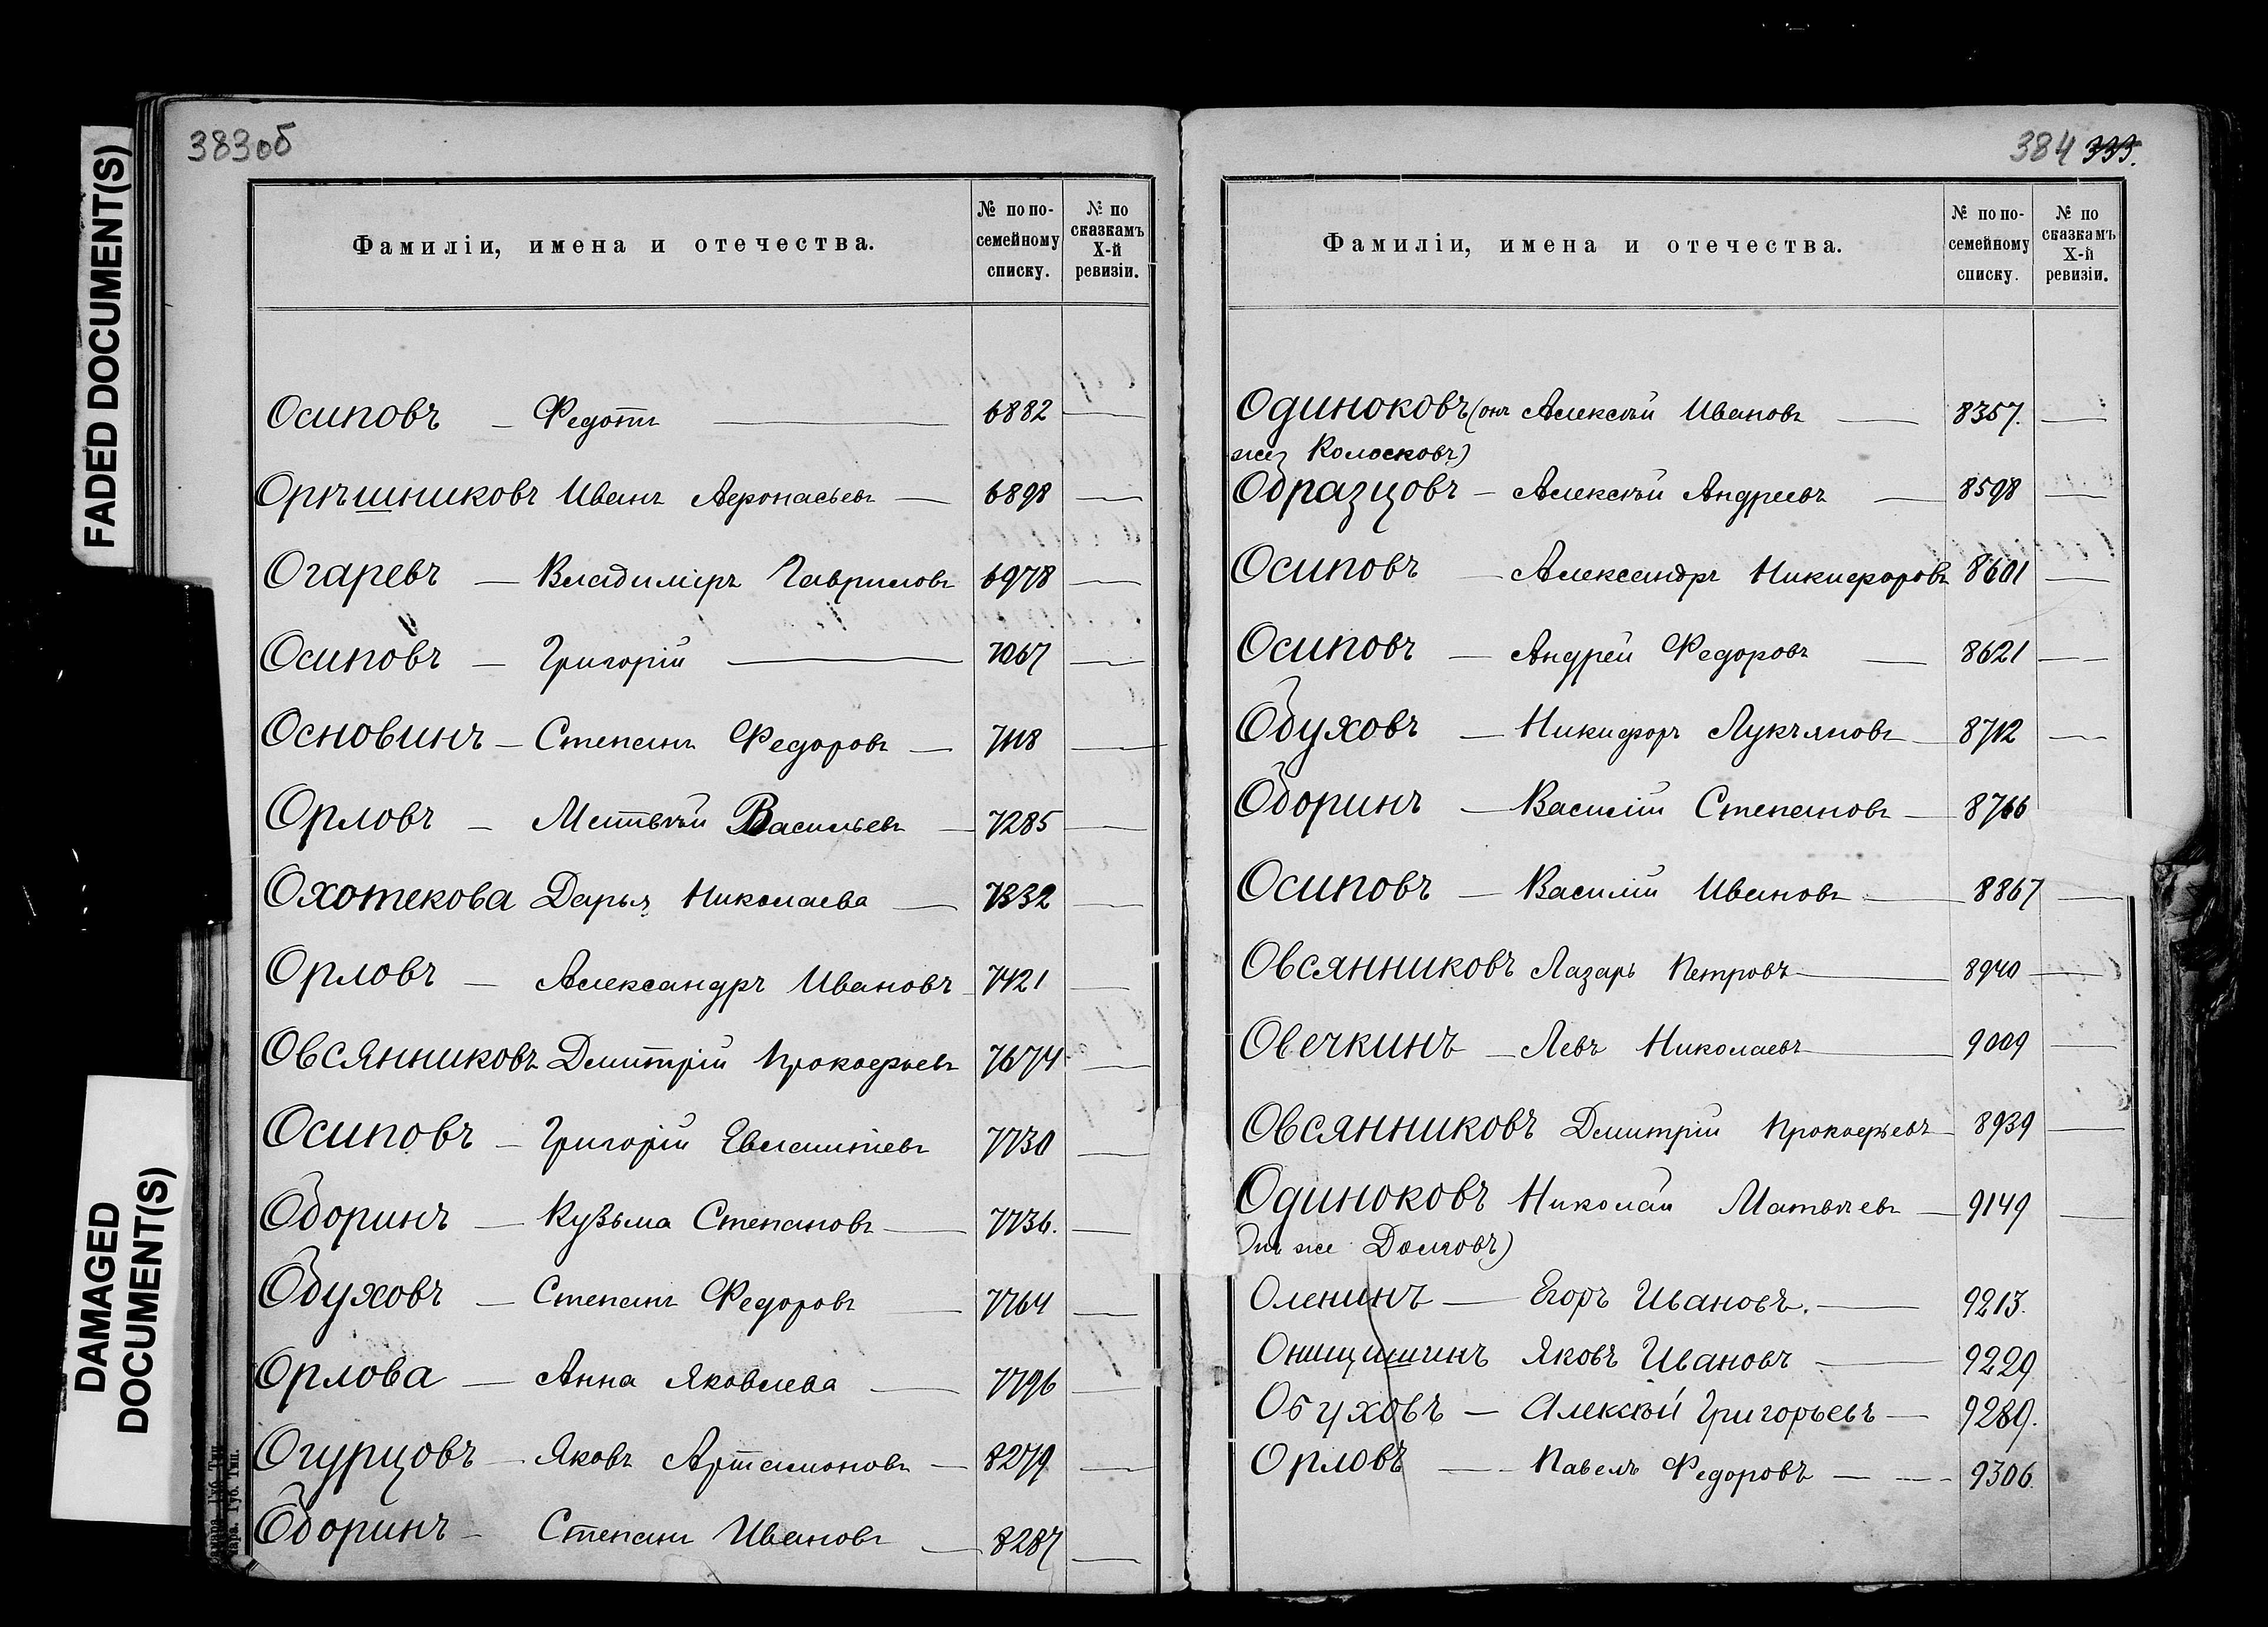 FADED DOCUMENT(S)
DAMAGED
DOCUMENT(S)
383об
Фамиліи, имена и отечества.
№ по по-
семейному
списку.
№ по
сказкамъ
X-й
ревизіи.
Осиповъ — Федотъ — 6882 —
Орѣшниковъ Иванъ Афонасьевъ — 6898 —
Огаревъ — Владиміръ Гавриловъ 6978 —
Осиповъ — Григорій — 7067 —
Основинъ — Степанъ Федоровъ — 7118 —
Орловъ — Матвѣй Васильевъ — 7285 —
Охотекова Дарья Николаева — 7332 —
Орловъ — Александръ Ивановъ 7421 —
Овсянниковъ Дмитрій Прокофьевъ 7674 —
Осиповъ — Григорій Евлампіевъ 7730 —
Оборинъ — Кузьма Степановъ — 7736. —
Обуховъ — Степанъ Федоровъ — 7764 —
Орлова — Анна Яковлева — 7796 —
Огурцовъ — Яковъ Артамоновъ — 8279 —
Оборинъ — Степанъ Ивановъ — 8287 —
384 333.
Фамиліи, имена и отечества.
№ по по-
семейному
списку.
№ по
сказкамъ
X-й
ревизіи.
Одиноковъ (онъ Алексѣй Ивановъ — 8357. —
же Колосковъ)
Образцовъ — Алексѣй Андреевъ — 8598 —
Осиповъ — Александръ Никифоровъ 8601 —
Осиповъ — Андрей Федоровъ — 8621 —
Обуховъ — Никифоръ Лукъяновъ — 8712 —
Оборинъ — Василій Степановъ — 8766
Осиповъ — Василій Ивановъ — 8867 —
Овсянниковъ Лазарь Петровъ — 8940 —
Овечкинъ — Левъ Николаевъ — 9009 —
Овсянниковъ Дмитрій Прокофьевъ — 8939 —
Одиноковъ Николай Матвѣевъ — 9149 —
Онъ же Долговъ)
Оленинъ — Егоръ Ивановъ. — 9213.
Яковъ Ивановъ — 9229
Обуховъ — Алексѣй Григорьевъ — 9289.
Орловъ — Павелъ Федоровъ — 9306.